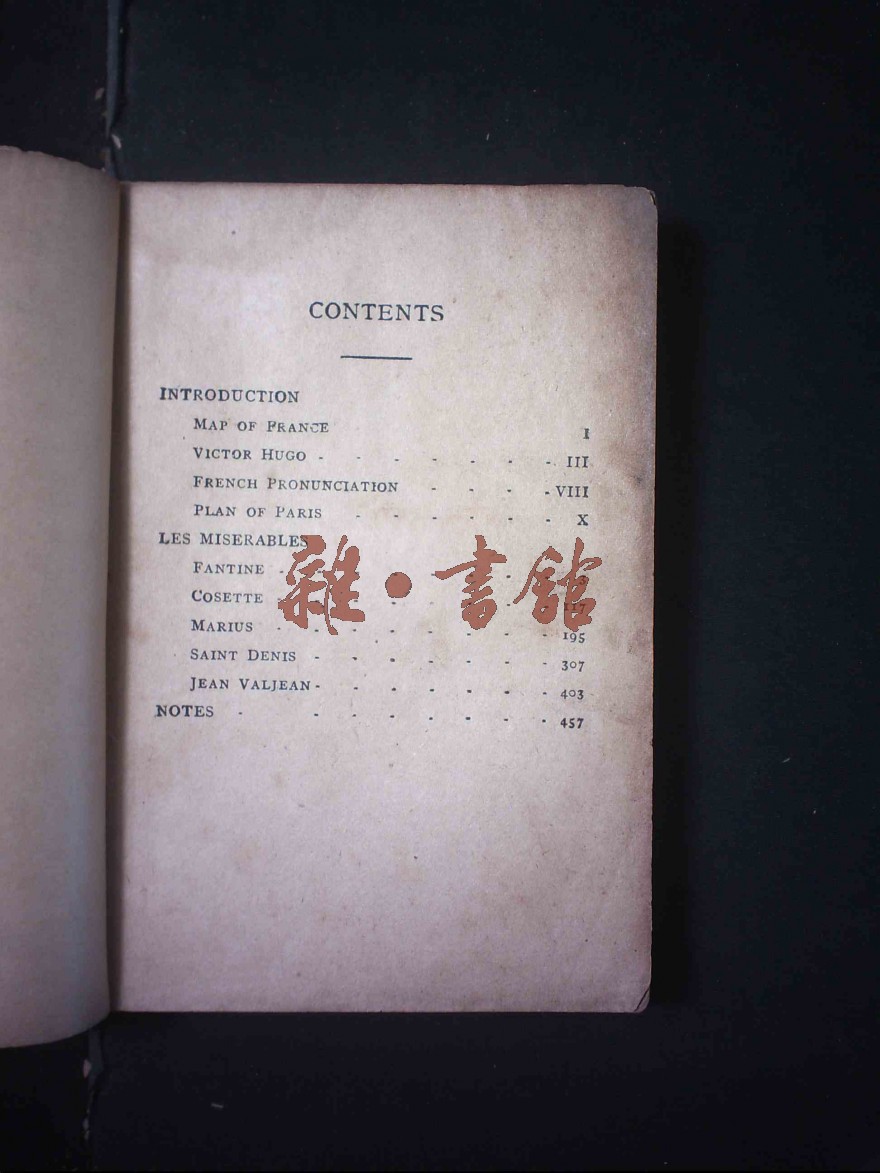 CONTENTS
INTRODUCTION
MAP OF FRANCE I
VICTOR HUGO - - - - - - - III
FRENCH PRONUNCIATION - - - - VIII
PLAN OF PARIS - - - - - - X
LES MISERABLES
FANTINE
COSETTE 117
MARIUS - - - - - - - - 195
SAINT DENIS - - - - - - - 307
JEAN VALJEAN - - - - - - - 403
NOTES - - - - - - - - 457
雜·書館